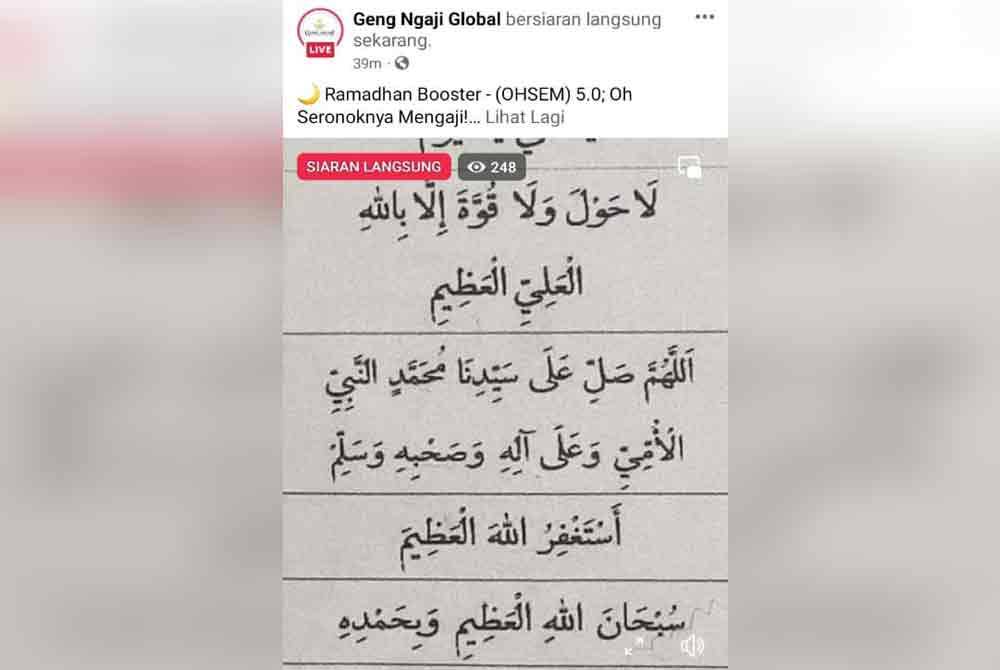 Geng Ngaji Global bersiaran langsung
sekarang.
LIVE
39m ·
🌙 Ramadhan Booster - (OHSEM) 5.0; Oh
Seronoknya Mengaji!... Lihat Lagi
SIARAN LANGSUNG
248
لَا حَوْلَ وَلَا قُوَّةَ إِلَّا بِاللهِ
الْعَلِيِّ الْعَظِيمِ
اَللَّهُمَّ صَلِّ عَلَى سَيِّدِنَا مُحَمَّدٍ النَّبِيِّ
الْأُمِّيِّ وَعَلَى آلِهِ وَصَحْبِهِ وَسَلِّمْ
أَسْتَغْفِرُ اللهَ الْعَظِيمَ
سُبْحَانَ اللهِ الْعَظِيمِ وَبِحَمْدِهِ